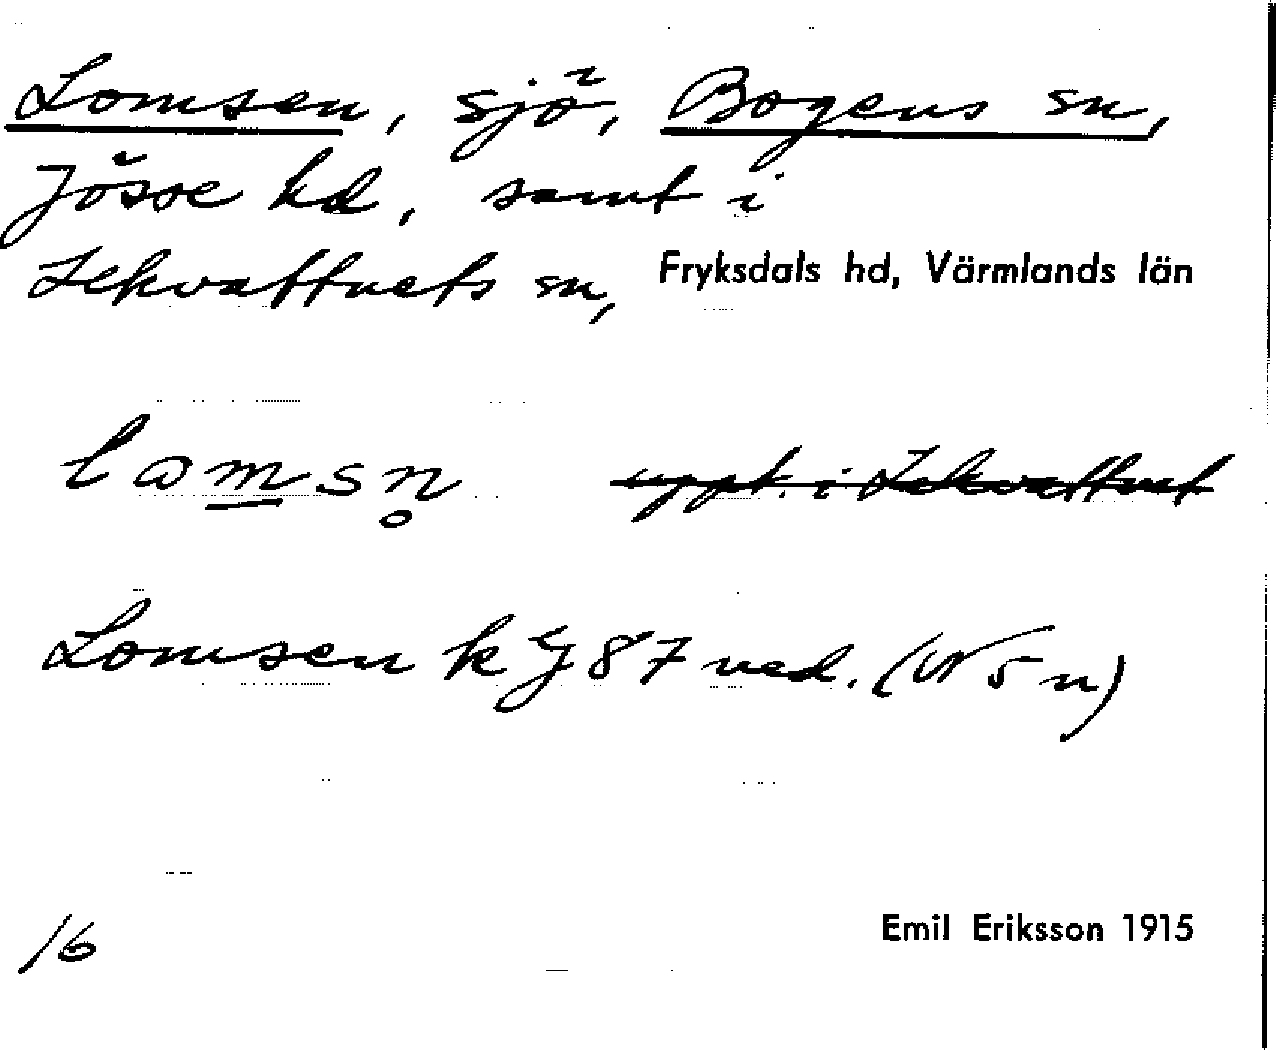 Lomsen, sjö, Bogens sn,
Jösse hd, samt i
Lekvattnets sn, Fryksdals hd, Värmlands län
lomsn̥ uppt. i Lekvattnet
Lomsen k Ä 87 ned. (V 5 n)
16
Emil Eriksson 1915